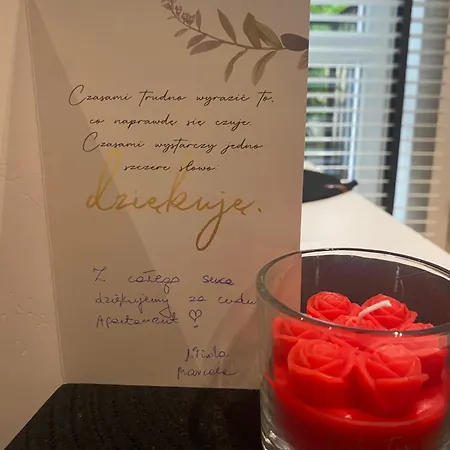 Czasami trudno wyrazić to,
co naprawdę się czuje.
Czasami wystarczy jedno
szczere słowo:
dziękuję.
Z całego serca
dziękujemy za
Apartament ♡!